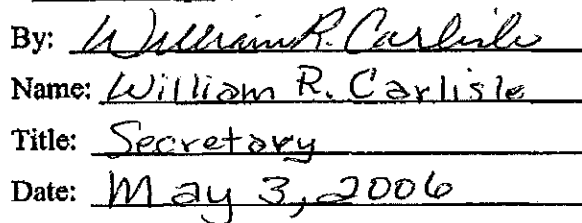 By: William R. Carlisle
Name: William R. Carlisle
Title: Secretary
Date: May 3, 2006